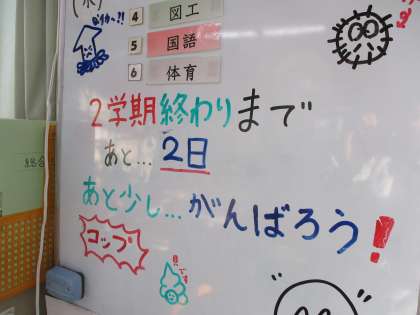 (水)
4 図工
5 国語
6 体育
2学期終わりまで
あと... 2日
あと少し... がんばろう!
コップ